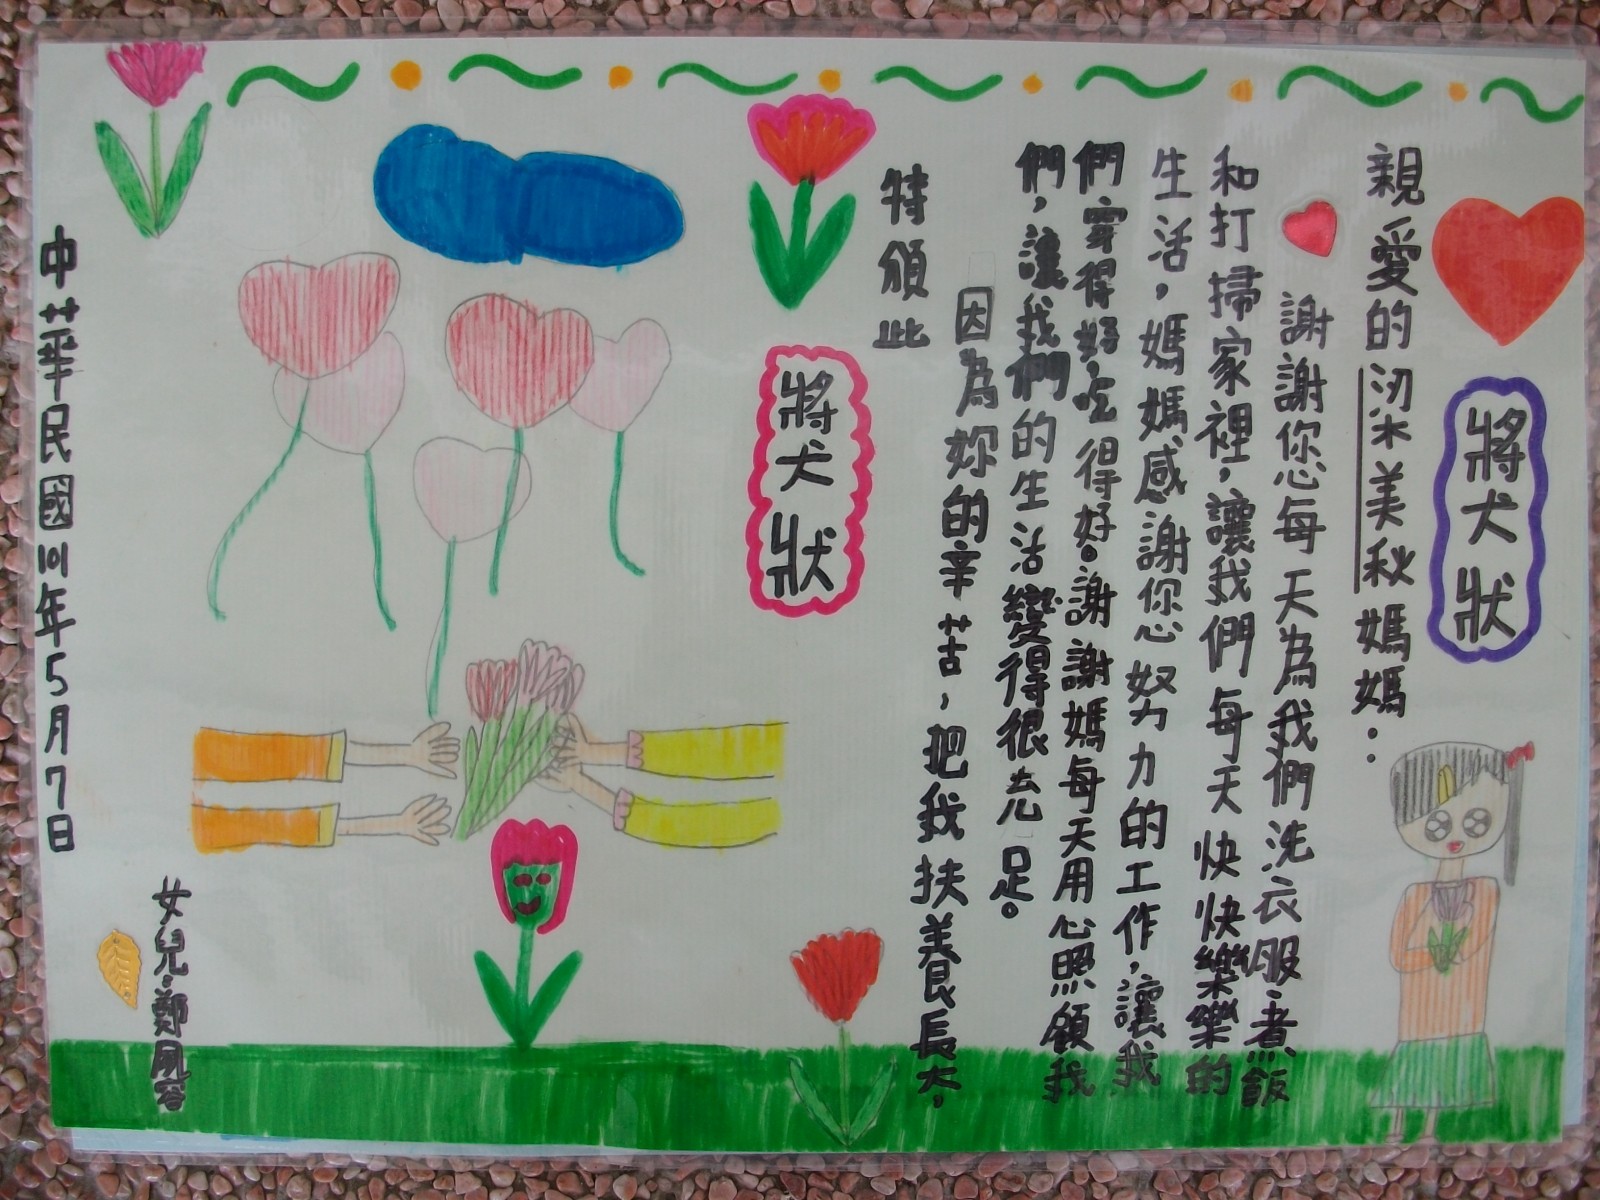 獎狀
親愛的梁美秋媽媽：
謝謝您每天為我們洗衣服、煮飯
和打掃家裡，讓我們每天快快樂樂的
生活，媽媽感謝您努力的工作，讓我
們穿得好，吃得好。謝謝媽每天用心照顧我
們，讓我們的生活變得很充足。
因為妳的辛苦，把我扶養長大，
特頒此
獎狀
女兒：鄭容
中華民國101年5月7日